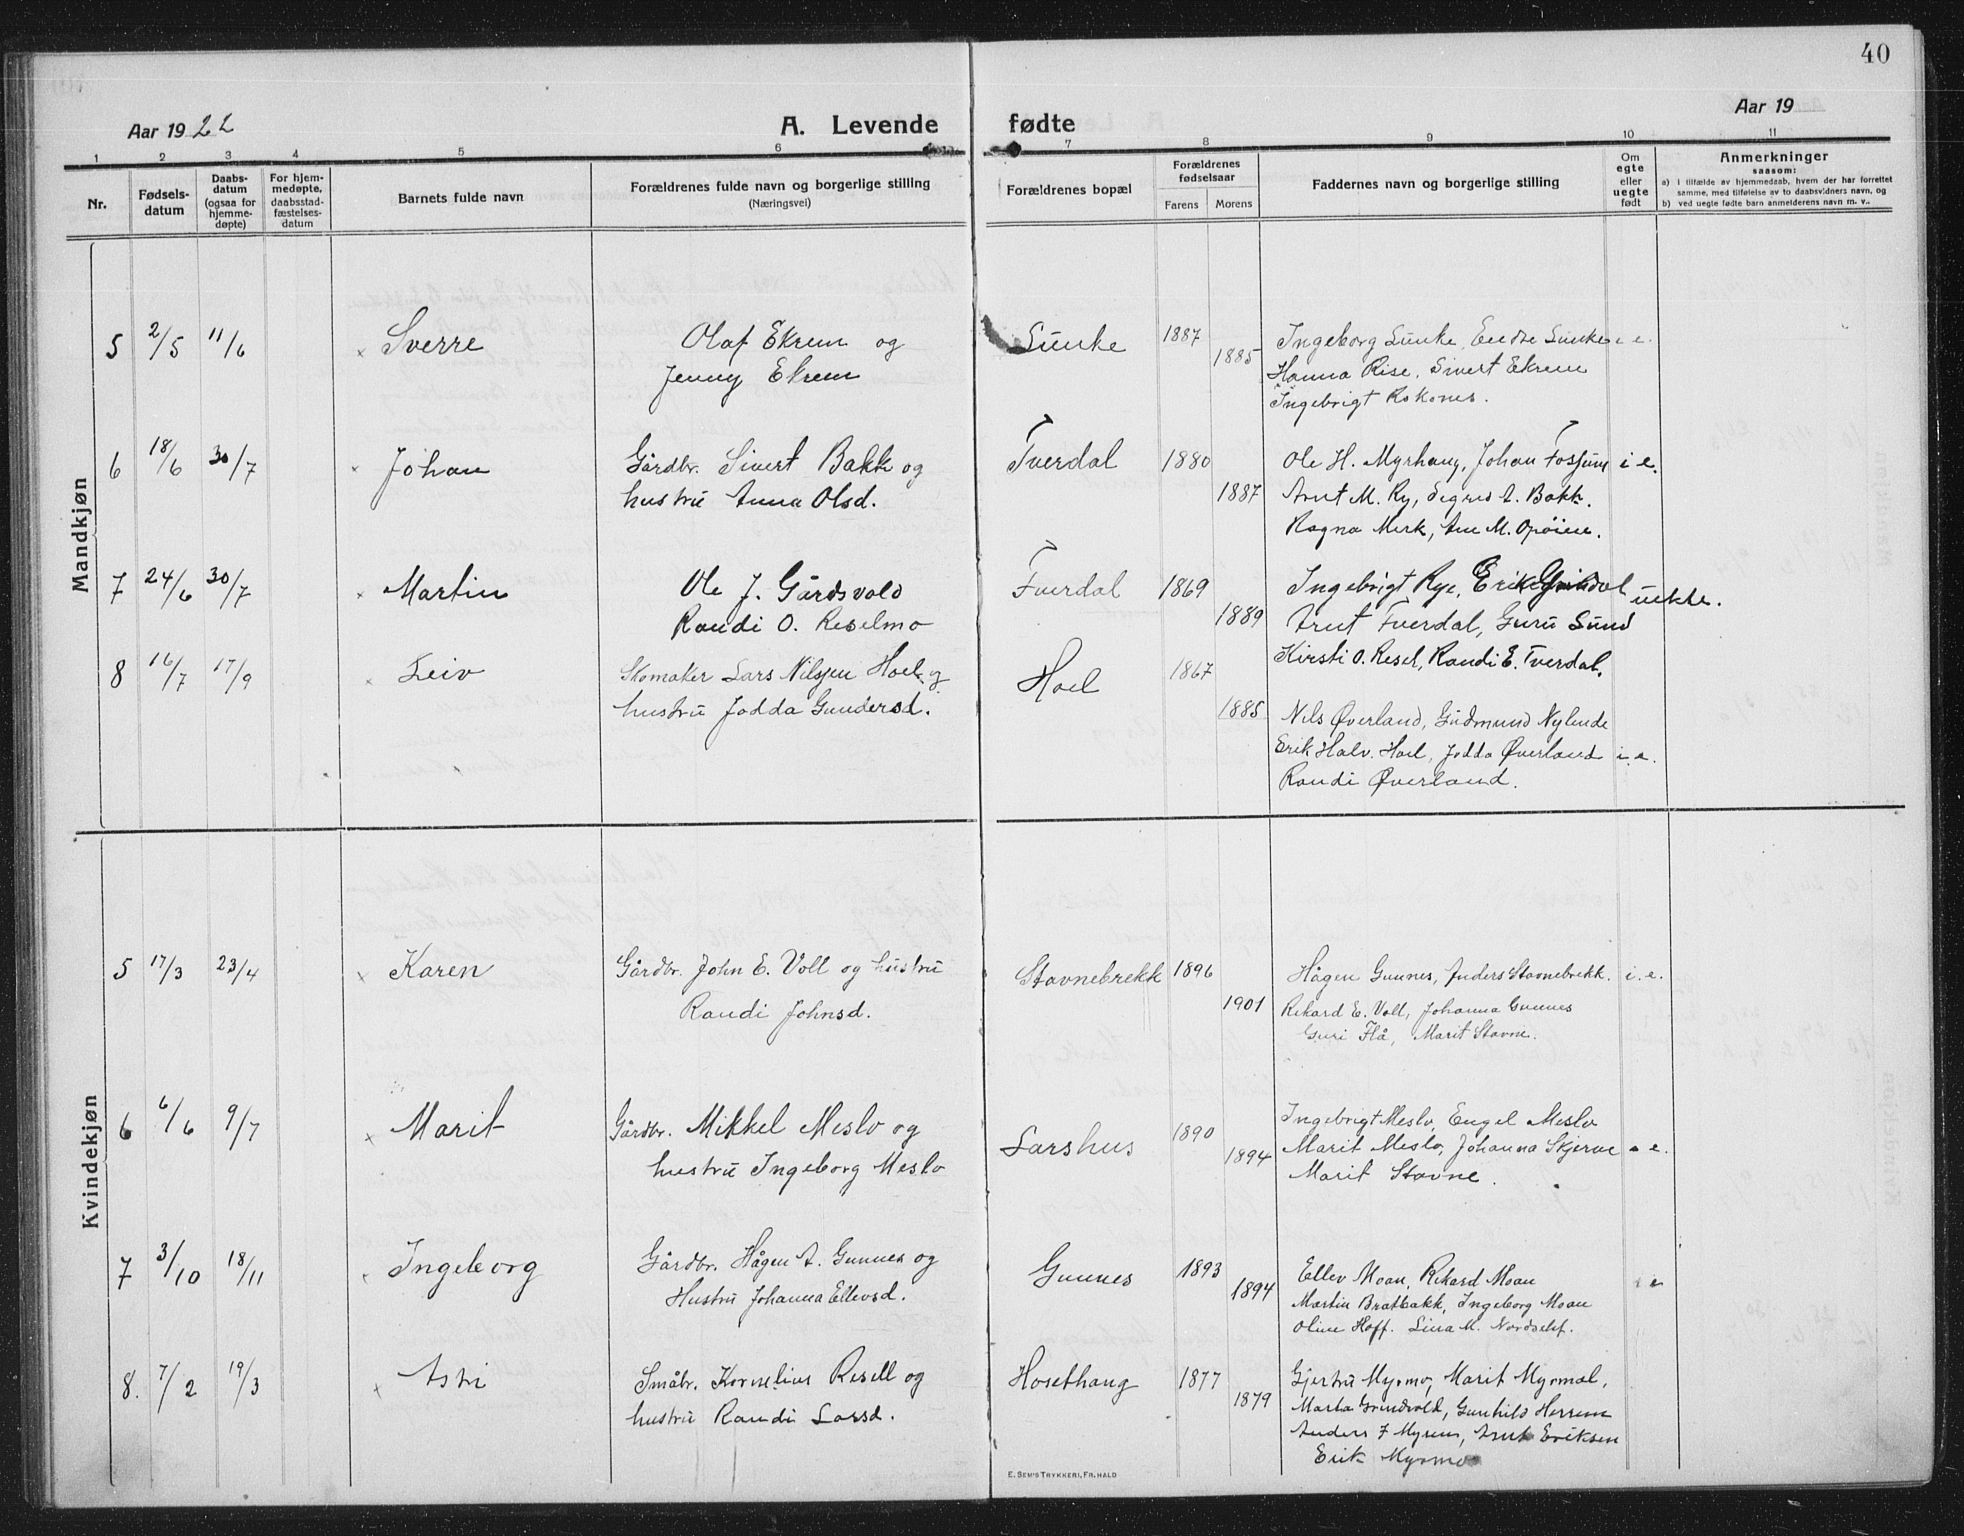 40
Aar 1922
A. Levende fødte
Aar 19
1 2 3 4 5 6 7 8 9 10 11
Nr.
Fødsels-
datum
Daabs-
datum
(ogsaa for
hjemme-
døpte)
For hjem-
medøpte,
daabsstad-
fæstelses-
datum
Barnets fulde navn
Forældrenes fulde navn og borgerlige stilling
(Næringsvei)
Forældrenes bopæl
Forældrenes
fødselsaar
Farens Morens
Faddernes navn og borgerlige stilling
Om
egte
eller
uegte
født
Anmerkninger
saasom:
a) i tilfælde av hjemmedaab, hvem der har forrettet
samme, med tilføielse av to daabsvidners navn, og
b) ved uegte fødte barn anmelderens navn m. v..
Mandkjøn
5 2/5 11/6 × Sverre
Olaf Ekrem og
Jenny Ekrem
Lunke 1887 1885
Ingeborg Lunke, Endre Lunke i e.
Hanna Rise, Sivert Ekrem
Ingebrigt Rokones.
6 18/6 30/7 × Johan
Gårdbr. Sivert Bakk og
hustru Anna Olsd.
Tverdal 1880 1887
Ole H. Myrhaug, Johan Fosjum i e.
Arnt M. Ry, Sigrid A. Bakk.
Ragna Merk, Ane M. Opøien.
7 24/6 30/7 × Martin
Ole J. Gårdsvold
Randi O. Reselmo
Tverdal 1869 1889
Ingebrigt Rye, Erik Grindal uekte.
Arnt Tverdal, Guru Sund
Kirsti O. Resel, Randi E. Tverdal.
8 16/7 17/9 × Leiv
Skomaker Lars Nilsjen Hoel og
hustru Jodda Gundersd.
Hoel 1867 1885
Nils Øverland, Gudmund Nylende
Erik Halv. Hoel, Jodda Øverland i. e.
Randi Øverland.
Kvindekjøn
5 17/3 23/4 × Karen
Gårdbr. John E. Voll og hustru
Randi Johnsd.
Stavnebrekk 1896 1901
Hågen Gunnes, Anders Stavnebrekk. i. e.
Rikard E. Voll, Johanna Gunnes
Guri Flå, Marit Stavne.
6 6/6 9/7 × Marit
Gårdbr. Mikkel Meslo og
hustru Ingeborg Meslo
Larshus 1890 1894
Ingebrigt Meslo, Engel Meslo
Marit Meslo, Johanna Skjerve e.
Marit Stavne.
7 3/10 18/11 × Ingeborg
Gårdbr. Hågen A. Gunnes og
Hustru Johanna Ellevsd.
Gunnes 1893 1894
Ellev Moan, Rikard Moan i e
Martin Bratbakk, Ingeborg Moan
Oline Hoff. Lina M.
8. 7/2 19/3 × Astri
Småbr. Kornelius Resell og
hustru Randi Larsd.
Hosethaug 1877 1879
Gjertru Myrmo, Marit Myrmal,
Marta Grindvold, Gunhild Herrem
Anders J Myren, Arnt Eriksen
Erik Myrmo
E. SEM'S TRYKKERI, FR.HALD